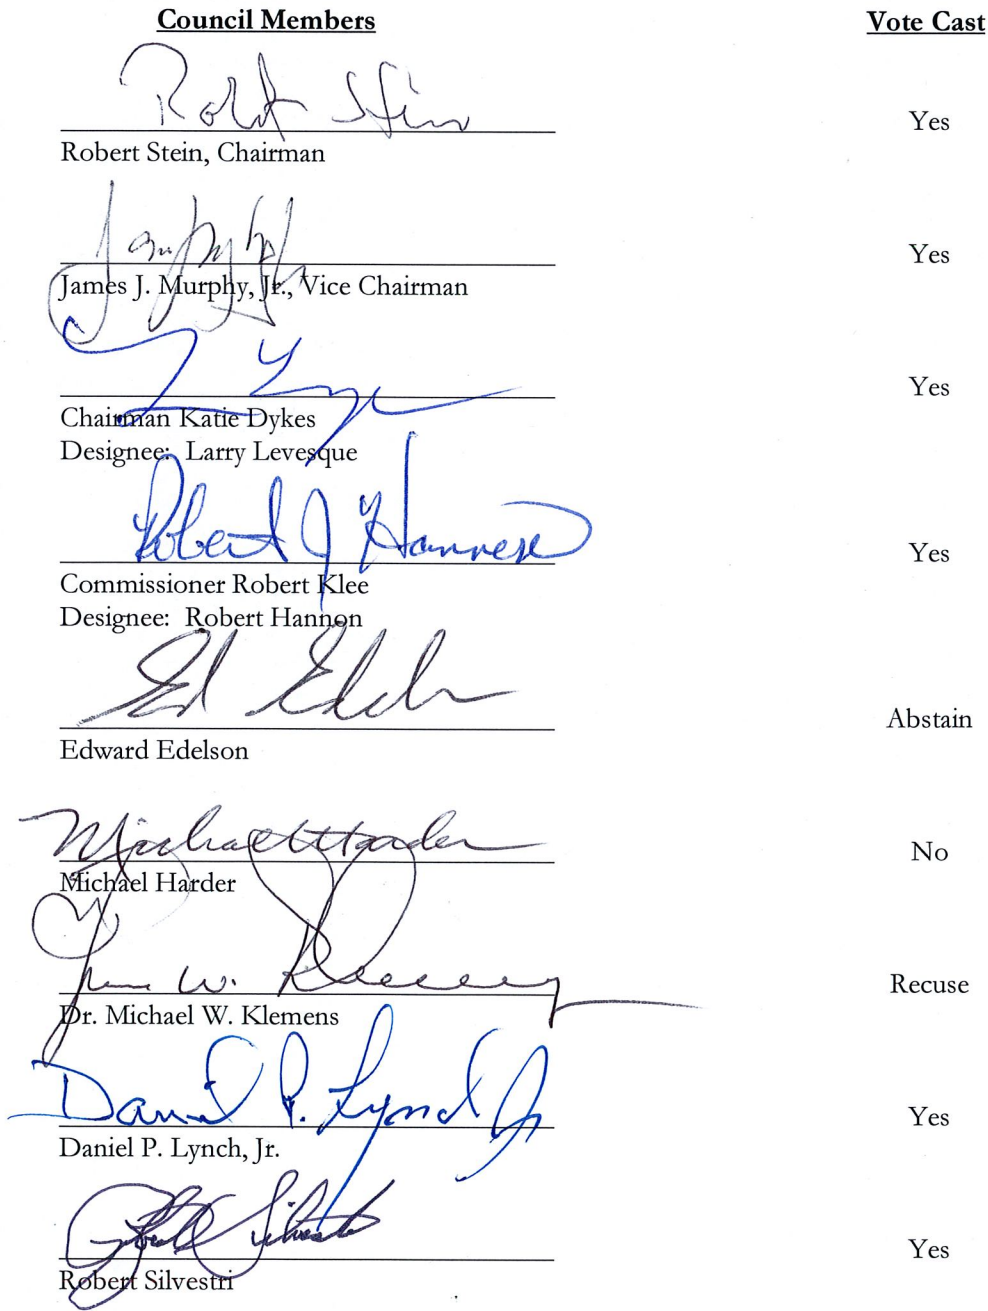 Council Members Vote Cast
Robert Stein Yes
Robert Stein, Chairman
Yes
James J. Murphy, Jr., Vice Chairman
Yes
Chairman Katie Dykes
Designee: Larry Levesque
Robert J Hannon Yes
Commissioner Robert Klee
Designee: Robert Hannon
Ed Edelson Abstain
Edward Edelson
Michael Harder No
Michael Harder
W. Recuse
Dr. Michael W. Klemens
Daniel P. Lynch Jr Yes
Daniel P. Lynch, Jr.
Robert Silvestri Yes
Robert Silvestri